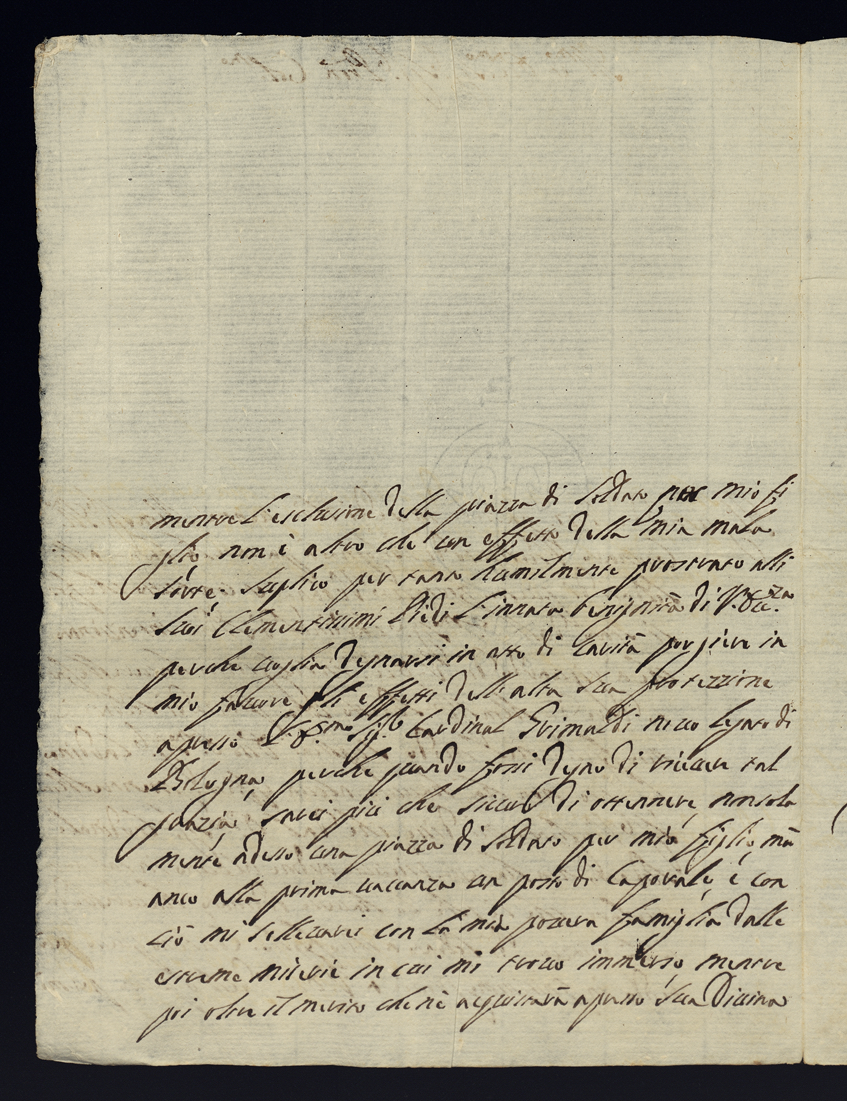 mentre l'esclusione della piazza di Soldato per mio fi
glio non è altro che un effetto della mia mala
sorte. Suplico per tanto humilmente prostrato alli
Suoi Clementissimi Piedi l'innata benignità di V. Ecc.za
perche voglia degnarsi in atto di carità porgiere in
mio favore gli effetti dell'alta Sua Protezzione
apresso l'E.mo Sig.r Cardinal Grimaldi novo Legato di
Bologna, perche quando fossi degno di ricever tal
grazia, sarei più che sicuro di ottennere, nonsola
mente adesso una piazza di Soldato per mio figlio, mà
anco alla prima vacanza un posto di Caporale, è con
ciò mi sollevarei con la mia povera famiglia dalle
estreme miserie in cui mi trovo immerso, mentre
poi oltre il merito che nè acquistarà apresso Sua Divina